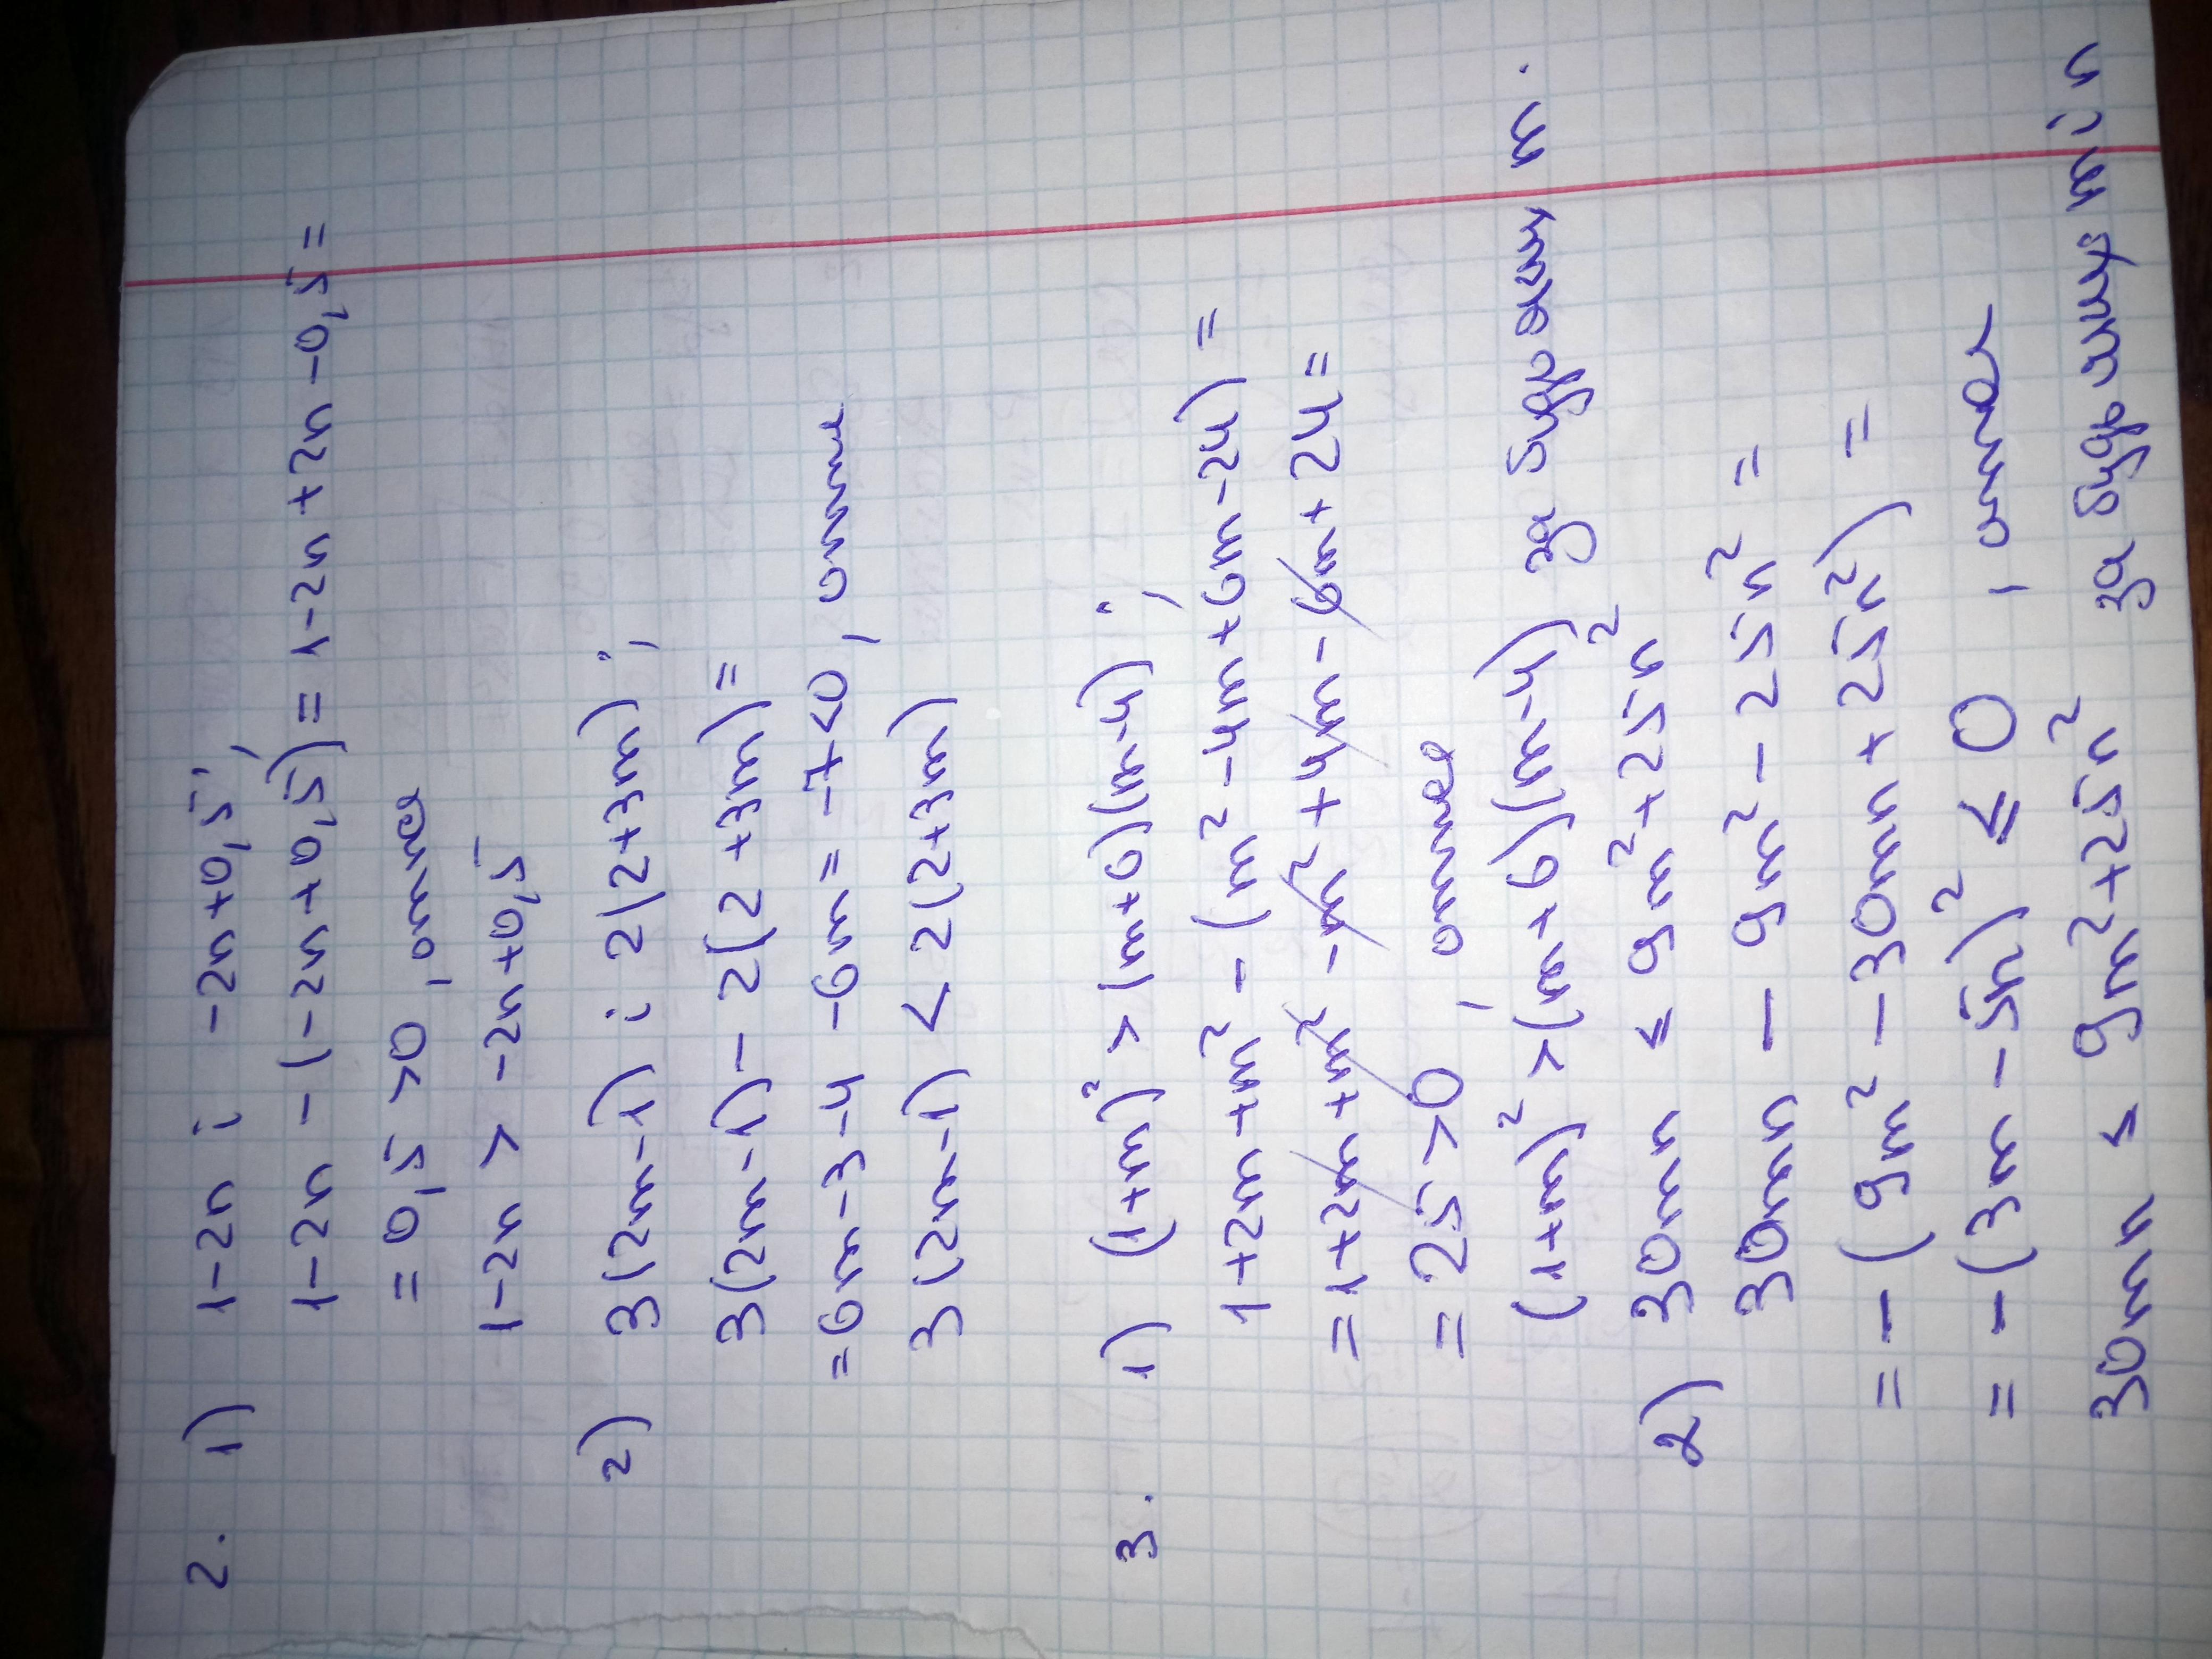 2. 1) 1-2n і -2n+0,5;
1-2n - (-2n+0,5) = 1-2n+2n-0,5 =
= 0,5 >0, отже
1-2n > -2n+0,5
2) 3(2m-1) і 2(2+3m);
3(2m-1) - 2(2+3m) =
= 6m-3-4-6m = -7<0, отже
3(2m-1) < 2(2+3m)
3. 1) (1+m)² > (m+6)(m-4);
1+2m+m² - (m²-4m+6m-24) =
= 1+2m+m² -m²+4m-6m+24=
= 25 >0, отже
(1+m)² > (m+6)(m-4) за будь яких m.
2) 30mn ≤ 9m²+25n²
30mn - 9m² - 25n² =
= - (9m² - 30mn + 25n²) =
= - (3m - 5n)² ≤ 0, отже
30mn ≤ 9m²+25n² за будь яких m і n